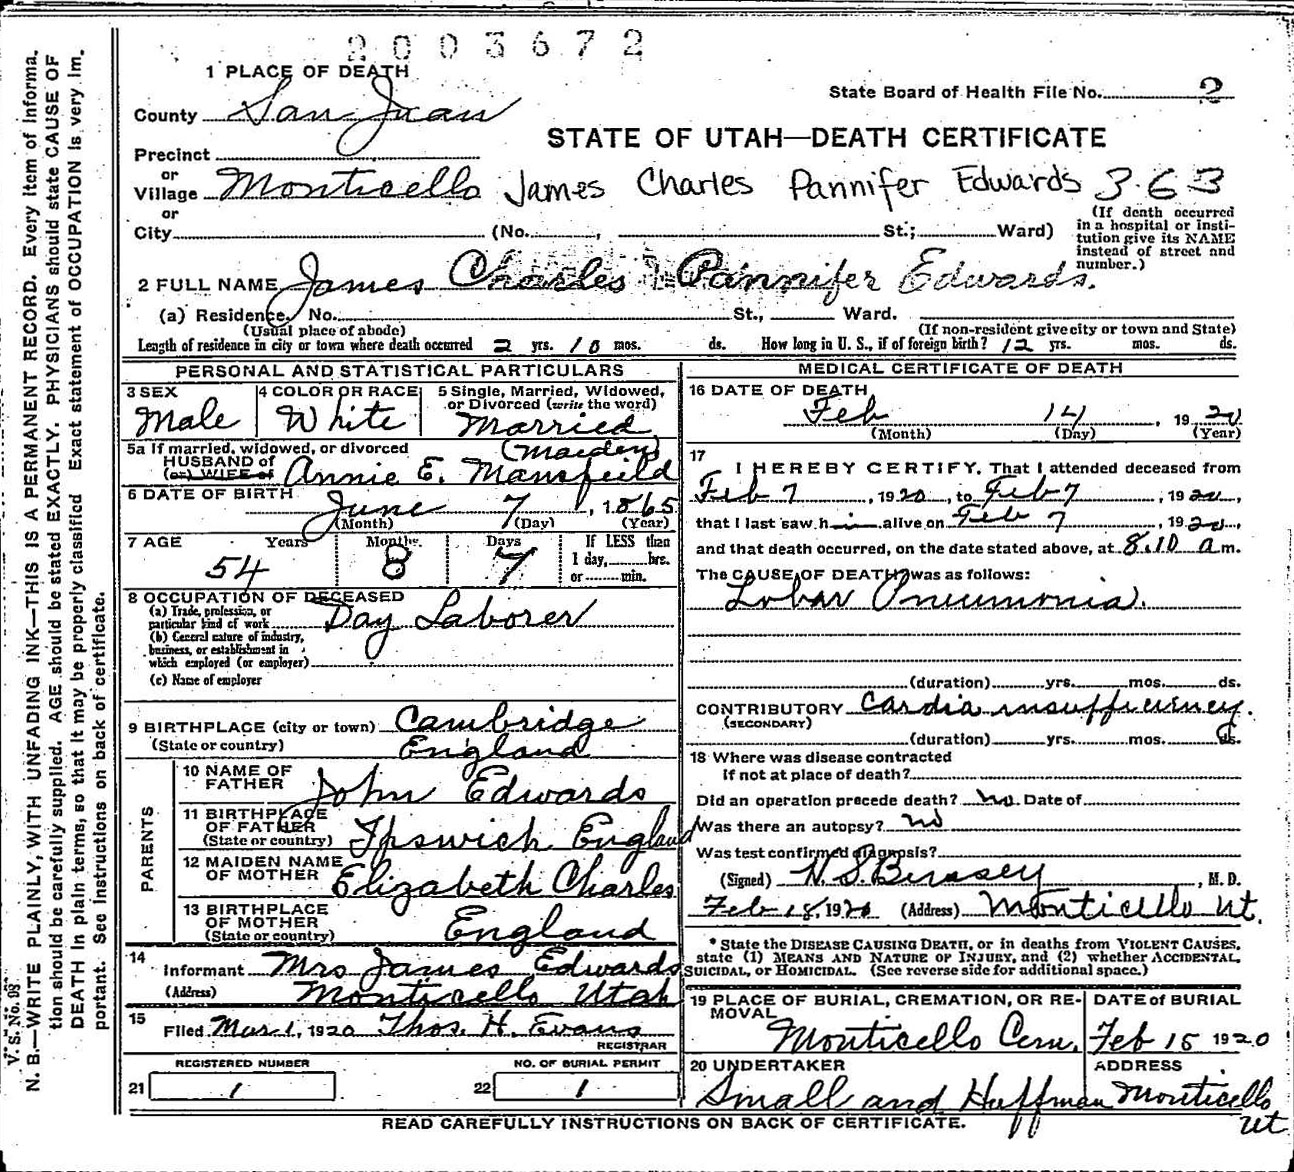 2003672
1 PLACE OF DEATH
State Board of Health File No. 2
County San Juan
STATE OF UTAH—DEATH CERTIFICATE
Precinct
or
Village Monticello James Charles Pannifer Edwards 363
or
City (No. , St.; Ward)
(If death occurred in a hospital or insti-
tution give its NAME
instead of street and
number.)
2 FULL NAME James Charles Pannifer Edwards.
(a) Residence. No. St., Ward.
(Usual place of abode) (If non-resident give city or town and State)
Length of residence in city or town where death occurred 2 yrs. 10 mos. ds. How long in U. S., if of foreign birth? 12 yrs. mos. ds.
PERSONAL AND STATISTICAL PARTICULARS
3 SEX 4 COLOR OR RACE 5 Single, Married, Widowed,
or Divorced (write the word)
Male White Married
5a If married, widowed, or divorced (Maiden)
HUSBAND of
(or) WIFE of Annie E. Mansfeild
6 DATE OF BIRTH June 7, 1865
(Month) (Day) (Year)
7 AGE Years Months Days If LESS than
1 day, hrs.
or min.
54 8 7
8 OCCUPATION OF DECEASED
(a) Trade, profession, or
particular kind of work Day Laborer
(b) General nature of industry,
business, or establishment in
which employed (or employer)
(c) Name of employer
9 BIRTHPLACE (city or town) Cambridge
(State or country) England
PARENTS
10 NAME OF
FATHER John Edwards
11 BIRTHPLACE
OF FATHER
(State or country) Ipswich England
12 MAIDEN NAME
OF MOTHER Elizabeth Charles
13 BIRTHPLACE
OF MOTHER
(State or country) England
14
Informant Mrs James Edwards
(Address) Monticello Utah
15
Filed Mar 1, 1920 Thos. H. Evans
REGISTRAR
REGISTERED NUMBER NO. OF BURIAL PERMIT
21 1 22 1
MEDICAL CERTIFICATE OF DEATH
16 DATE OF DEATH
Feb 14, 1920
(Month) (Day) (Year)
17
I HEREBY CERTIFY, That I attended deceased from
Feb 7, 1920, to Feb 7, 1920,
that I last saw him alive on Feb 7, 1920,
and that death occurred, on the date stated above, at 8.10 a m.
The CAUSE OF DEATH was as follows:
Lobar Pneumonia.
(duration) yrs. mos. ds.
CONTRIBUTORY Cardia insufficiency.
(SECONDARY)
(duration) yrs. mos. ds.
18 Where was disease contracted
if not at place of death?
Did an operation precede death? no. Date of
Was there an autopsy? no
Was test confirmed diagnosis?
(Signed) , M. D.
Feb 18, 1920 (Address) Monticello Ut.
* State the DISEASE CAUSING DEATH, or in deaths from VIOLENT CAUSES,
state (1) MEANS AND NATURE OF INJURY, and (2) whether ACCIDENTAL,
SUICIDAL, or HOMICIDAL. (See reverse side for additional space.)
19 PLACE OF BURIAL, CREMATION, OR RE-
MOVAL
Monticello Cem.
DATE of BURIAL
Feb 15 1920
20 UNDERTAKER
Small and Huffman
ADDRESS
Monticello
Ut
READ CAREFULLY INSTRUCTIONS ON BACK OF CERTIFICATE.
V. S. No. 98.
N. B.—WRITE PLAINLY, WITH UNFADING INK—THIS IS A PERMANENT RECORD. Every item of informa-
tion should be carefully supplied. AGE should be stated EXACTLY. PHYSICIANS should state CAUSE OF
DEATH in plain terms, so that it may be properly classified. Exact statement of OCCUPATION is very im-
portant. See instructions on back of certificate.